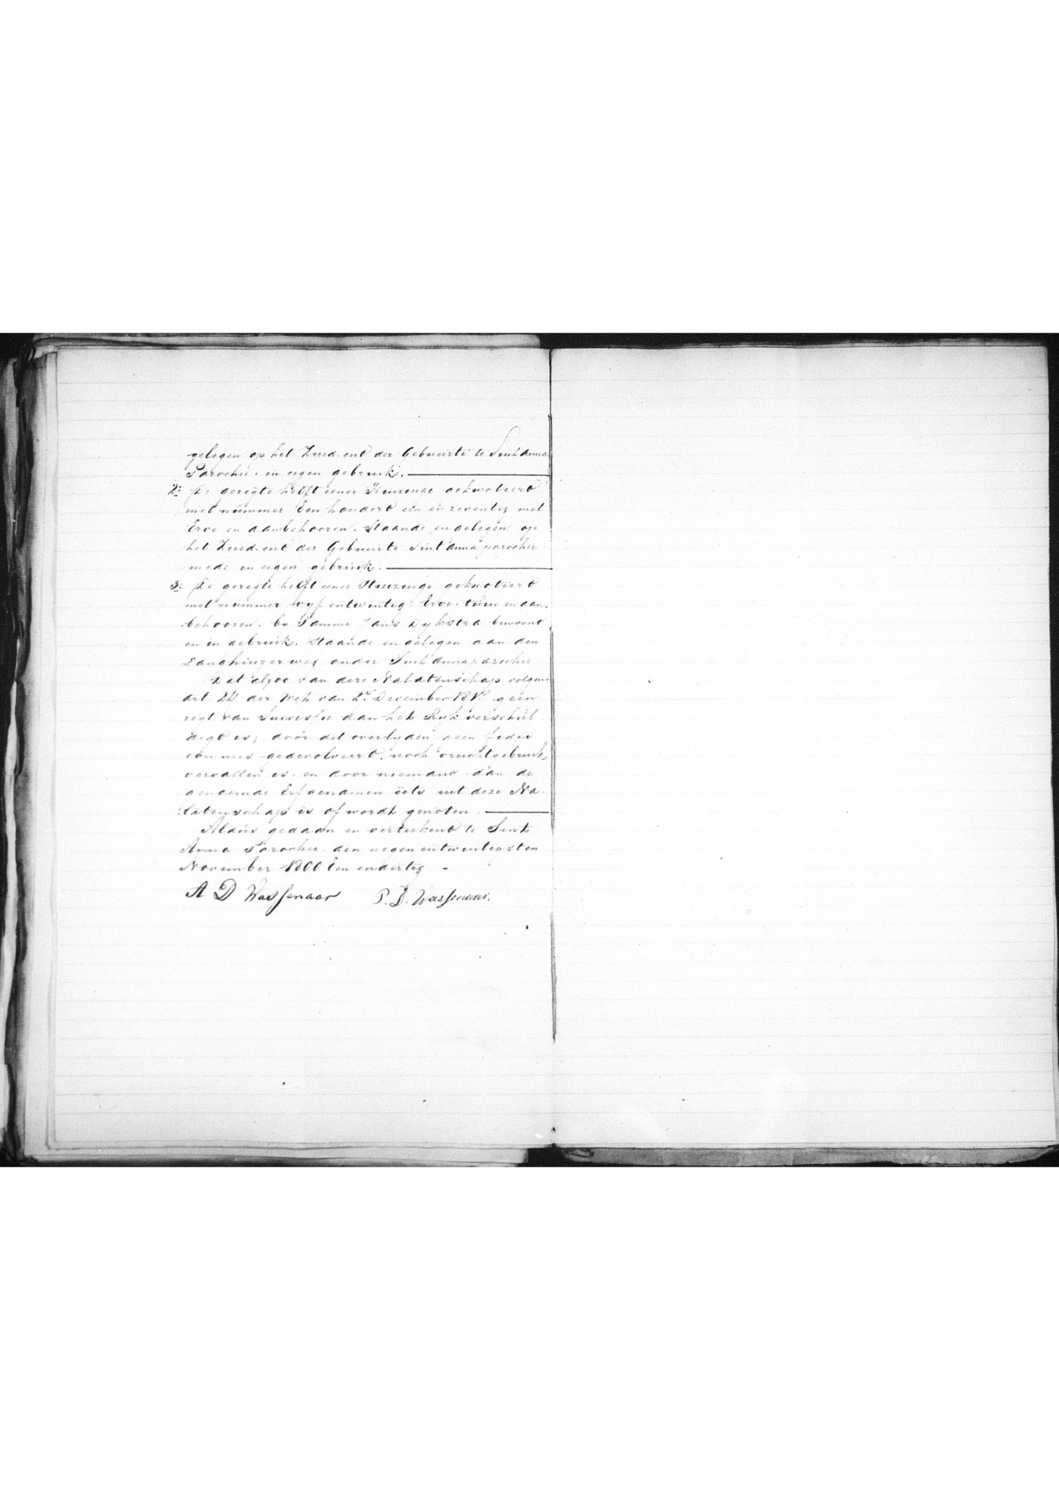 gelegen op het Zuid. end der Gebuurte te Sint anna
Parochie. en eigen gebruik.
2: De geregte helft eener Huizinge gekwoteerd
met nummer Een honderd een en zeventig met
Erve en aanbehooren. Staande en gelegen op
het Zuid. end der Gebuurte Sint anna parochie
mede en eigen gebruik.
3: De geregte helft eener Huizinge gekwoteerd
met nummer vyf entwintig Erve tuin en aan.
behooren. by Tamme Jans Dykstra bewoond
en in gebruik. Staande en gelegen aan den
weg onder Sint annaparochie
Dat alzoo van deze Nalatenschap volgens
art 24 der Wet van December geen
regt van Successie aan het Ryk verschul
digt is, door dit overlyden geen fidei
commis gedevolveerd, noch vruchtgebruik
vervallen is. en door niemand dan de
genoemde Erfgenamen iets uit deze Na.
latenschap is of wordt genoten.
Aldus gedaan en vertekend te Sint
Anna Parochie. den negen entwintigsten
November 1800 Een en dertig
A D Wassenaar P. D. Wassenaar.